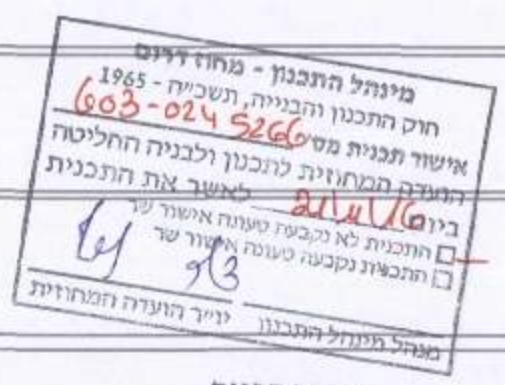 מינהל התכנון - מחוז דרום
חוק התכנון והבנייה, תשכ״ה - 1965
אישור תכנית מס' 603-0245266
הועדה המחוזית לתכנון ולבניה החליטה
ביום 21/11/16 לאשר את התכנית
התכנית לא נקבעה טעונה אישור שר
התכנית נקבעה טעונה אישור שר
מנהל מינהל התכנון יו״ר הועדה המחוזית